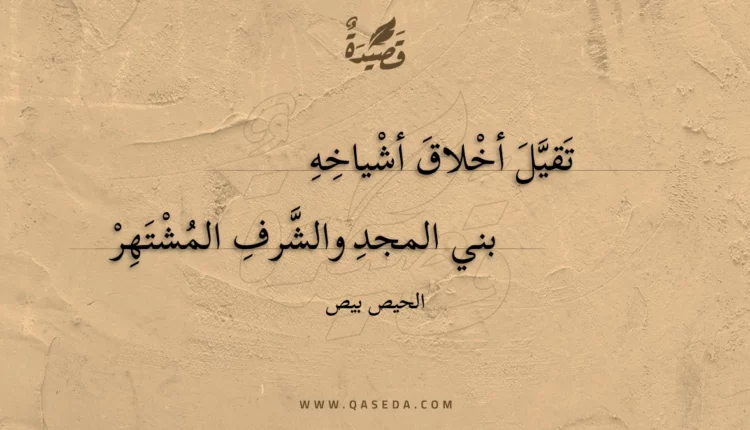 قَصِيْدَةٌ
تَقيَّلَ أخْلاقَ أشْياخِهِ
بني المجدِ والشَّرفِ المُشْتَهِرْ
الحيص بيص
WWW.QASEDA.COM